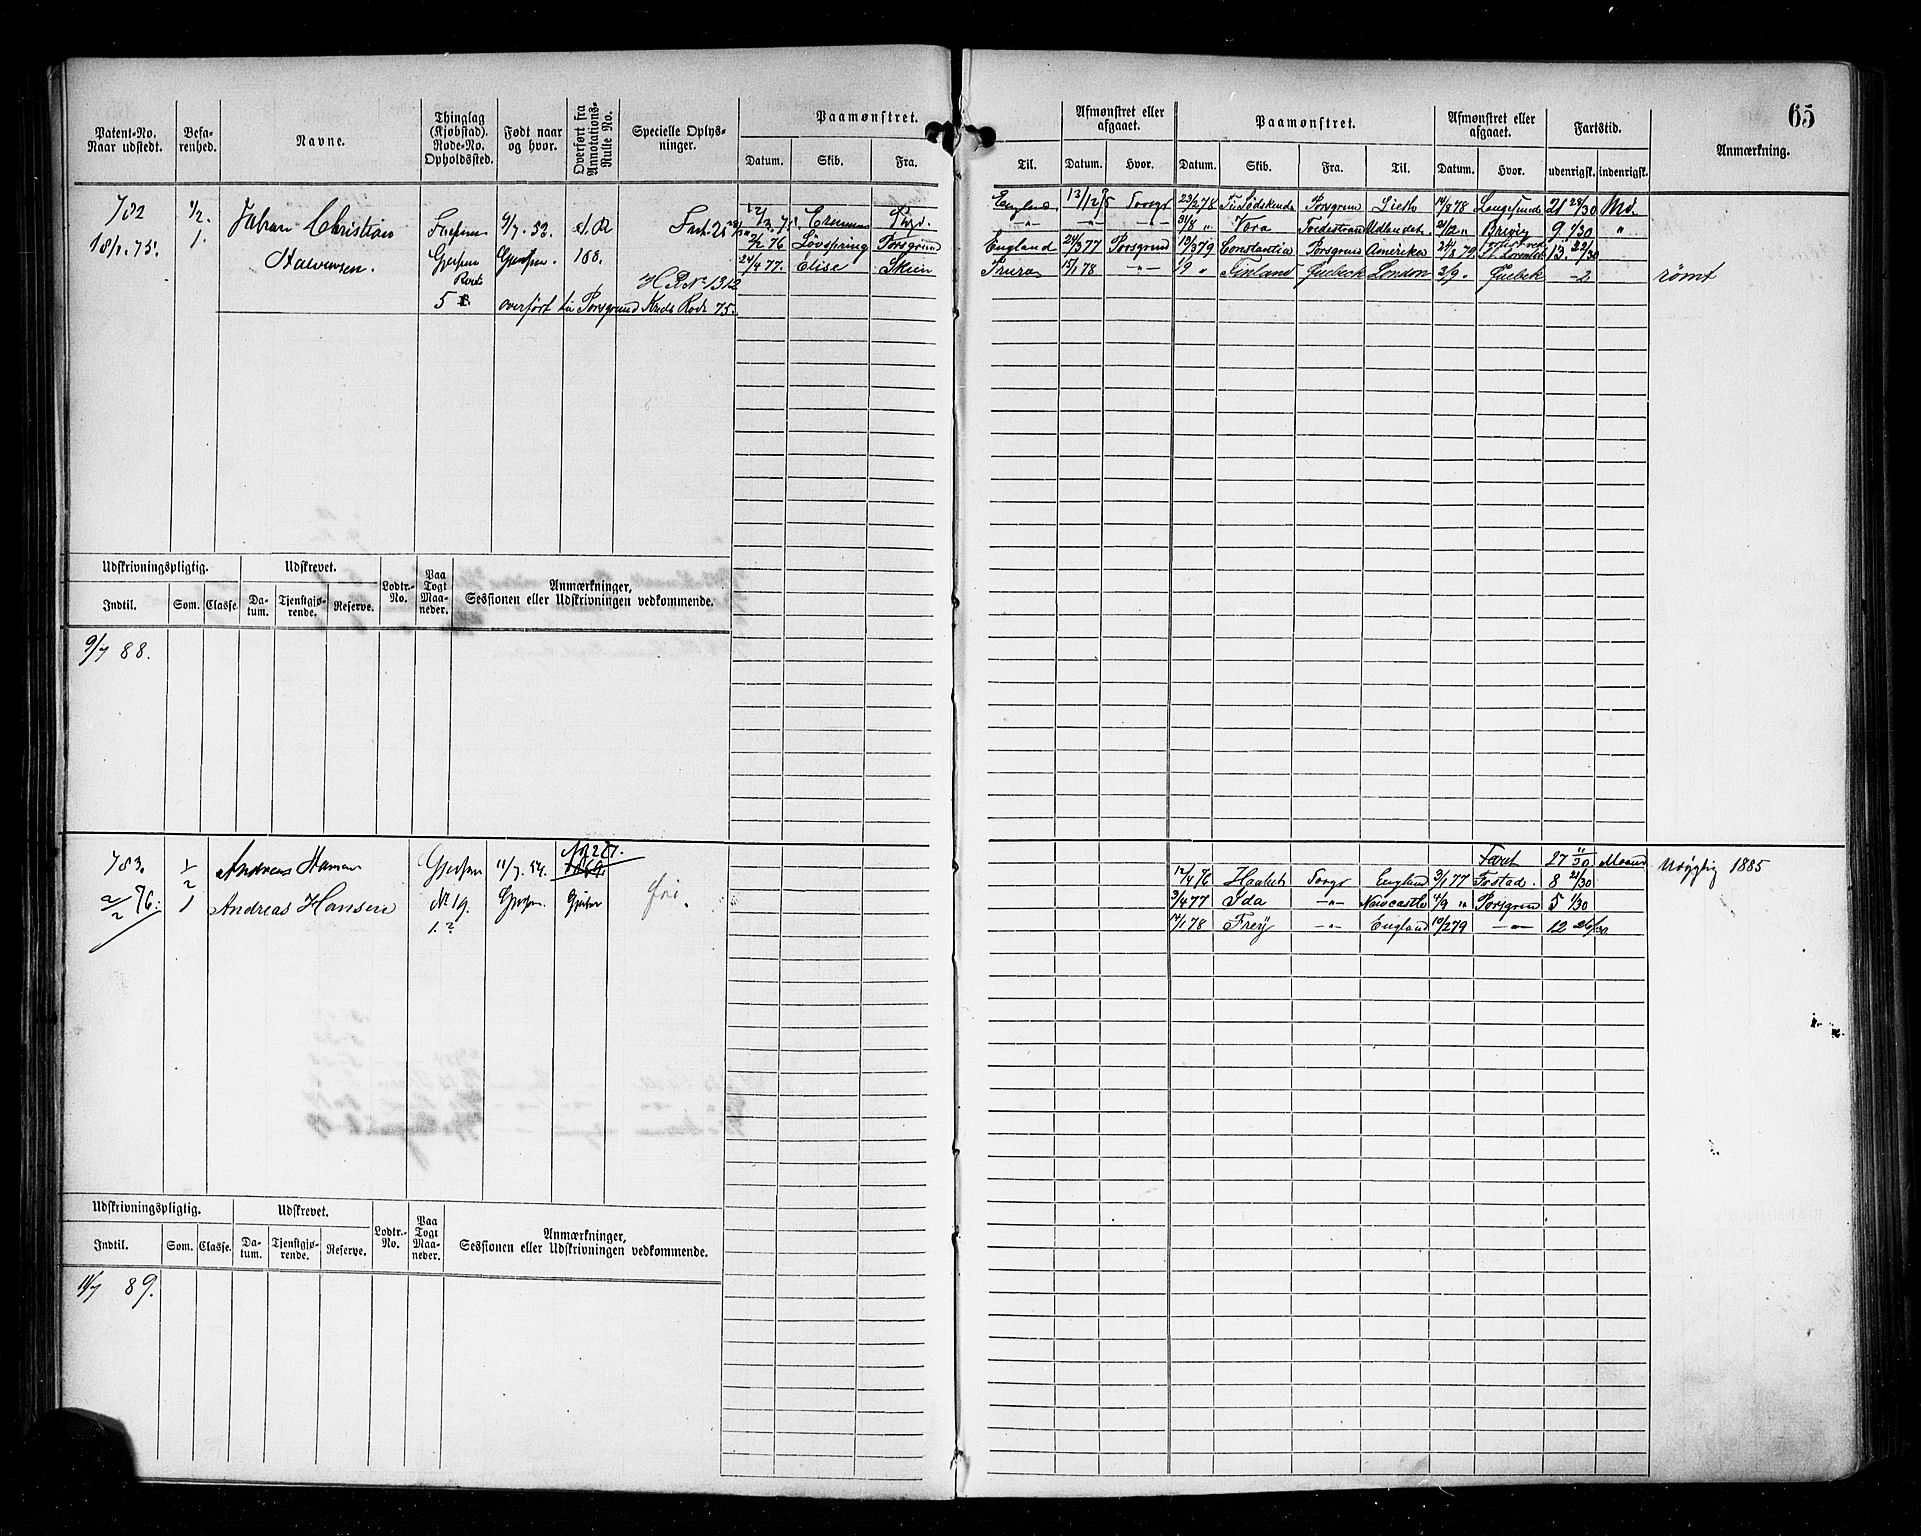 65
Patent-No. Naar udstedt.
Befarenhed.
Navne.
Thinglag (Kjøbstad). Rode-No. Opholdssted.
Født naar og hvor.
Overført fra Annotations-Rulle No.
Specielle Oplysninger.
Paamønstret.
Datum. Skib. Fra.
Til.
Afmønstret eller afgaaet.
Datum. Hvor.
Paamønstret.
Datum. Skib. Fra. Til.
Afmønstret eller afgaaet.
Datum. Hvor.
Fartstid.
udenrigsk. indenrigsk.
Anmærkning.
782 1/2.
18/12 75. 1.
Christian
Halvorsen.
Gjerpen 9/7. 53.
Gjerpen. 108.
Rode
5 overført til Porsgrund Rode 75.
H.R.No 1312
75.
76 Løvspring Porsgrund
24/4 77. Elise Skien
England
England 24/3 77 Porsgrund
15/1 78
23/2 78 Porsgrund 14/8 78 Langesund 21 28/30 Md.
31/8 " Vora Udlandet. 21/12 " Brevig 9 1/30 "
13/3 79 Constantia Porsgrund Amerika 24/8 79. 13. 22/30
1/9 " Finland Quebeck London 2/9 " Quebek -2
rømt
Udskrivningspligtig.
Indtil. Som. Classe.
Udskrevet.
Datum. Tjenstgjørende. Reserve.
Lodtr.-No.
Paa Togt Maaneder.
Anmærkninger, Sessionen eller Udskrivningen vedkommende.
9/7 88.
783. 1/2 Andreas Hansen Gjerpen 11/7. 54. No 227.
2/2 76. 1 Andreas Hansen No 19. Gjerpen. fri.
1.?
Faret 27 11/30 Maaned
12/4 76 England 3/1 77 8 21/30
3/4 77 Ida -"- Newcastle 4/9 " Porsgrun 5 1/30
14/1 78 Frey -"- England 10/2 79 -"- 12 26/30
Usøgtig 1885
Udskrivningspligtig.
Indtil. Som. Classe.
Udskrevet.
Datum. Tjenstgjørende. Reserve.
Lodtr.-No.
Paa Togt Maaneder.
Anmærkninger, Sessionen eller Udskrivningen vedkommende.
11/7 89.